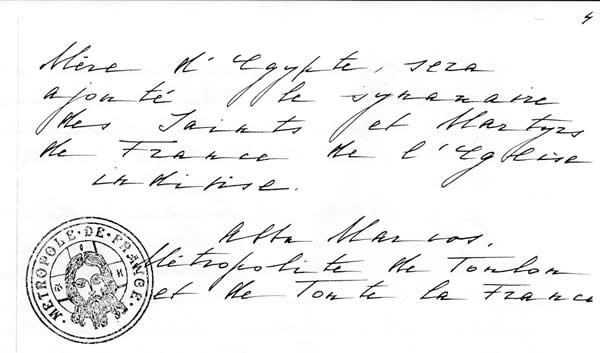 4
Mère d'Egypte, sera
ajouté le synaxaire
des Saints et Martyrs
de France de l'Eglise
indivise.
Abba Marcos,
Métropolite de Toulon
et de Toute la France
· METROPOLE · DE · FRANCE ·